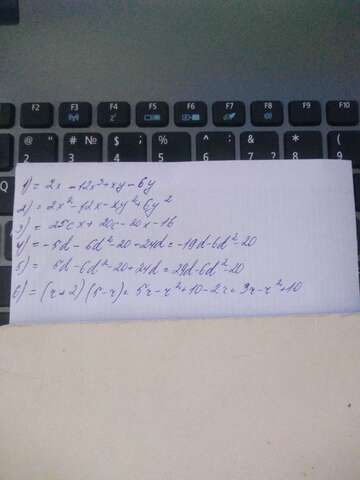 F2 F3 F4 F5 F6 F7 F8 F9 F10
@ # № $ % ^ & (
2 3 4 5 6 7 8 9
Q
1) = 2x - 12x² + xy - 6y
2) = 2x² - 12x - xy² + 6y²
3) = 25cx + 20c - 20x - 16
4) = -5d - 6d² - 20 + 24d = -19d - 6d² - 20
5) = 5d - 6d² - 20 + 24d = 29d - 6d² - 20
6) = (r + 2) (5 - r) = 5r - r² + 10 - 2r = 3r - r² + 10